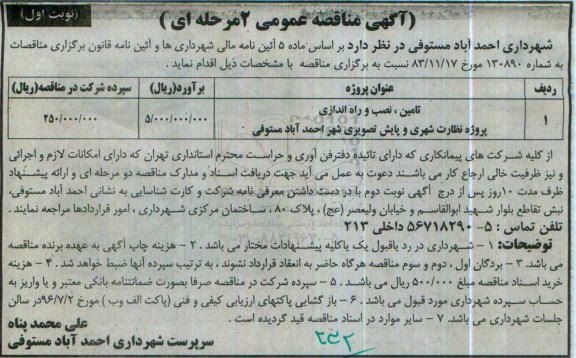 (نوبت اول)
(آگهی مناقصه عمومی ۲مرحله ای )
شهرداری احمد آباد مستوفی در نظر دارد بر اساس ماده ۵ آئین نامه مالی شهرداری ها و آئین نامه قانون برگزاری مناقصات
به شماره ۱۳۰۸۹۰ مورخ ۸۳/۱۱/۱۷ نسبت به برگزاری مناقصه با مشخصات ذیل اقدام نماید .
ردیف عنوان پروژه برآورد(ریال) سپرده شرکت در مناقصه(ریال)
۱ تامین ، نصب و راه اندازی پروژه نظارت شهری و پایش تصویری شهر احمد آباد مستوفی ۵/۰۰۰/۰۰۰/۰۰۰ ۲۵۰/۰۰۰/۰۰۰
از کلیه شرکت های پیمانکاری که دارای تائیده دفترفن آوری و حراست محترم استانداری تهران که دارای امکانات لازم و اجرائی
و نیز ظرفیت خالی ارجاع کار می باشند دعوت به عمل می آید جهت دریافت اسناد و مدارک مناقصه دو مرحله ای و ارائه پیشنهاد
ظرف مدت ۱۰روز پس از درج آگهی نوبت دوم با در دست داشتن معرفی نامه شرکت و کارت شناسایی به نشانی احمد آباد مستوفی،
نبش تقاطع بلوار شهید ابوالقاسم و خیابان ولیعصر (عج) ، پلاک ۸۰ ، ساختمان مرکزی شهرداری ، امور قراردادها مراجعه نمایند .
تلفن تماس : ۵-۵۶۷۱۸۲۹۰ داخلی ۲۱۳
توضیحات: ۱ – شهرداری در رد یاقبول یک یاکلیه پیشنهادات مختار می باشد . ۲ – هزینه چاپ آگهی به عهده برنده مناقصه
می باشد. ۳ – بردگان اول ، دوم و سوم مناقصه هرگاه حاضر به انعقاد قرارداد نشوند ، به ترتیب سپرده آنها ضبط خواهد شد . ۴ – هزینه
خرید اسناد مناقصه مبلغ ۵۰۰/۰۰۰ ریال می باشد . ۵ – سپرده شرکت در مناقصه صرفا بصورت ضمانتنامه بانکی معتبر و یا واریز به
حساب سپرده شهرداری مورد قبول می باشد . ۶ – باز گشایی پاکتهای ارزیابی کیفی و فنی (پاکت الف وب ) مورخ ۹۶/۷/۲در سالن
جلسات شهرداری می باشد. ۷ – سایر موارد در اسناد مناقصه قید گردیده است .
علی محمد پناه
سرپرست شهرداری احمد آباد مستوفی